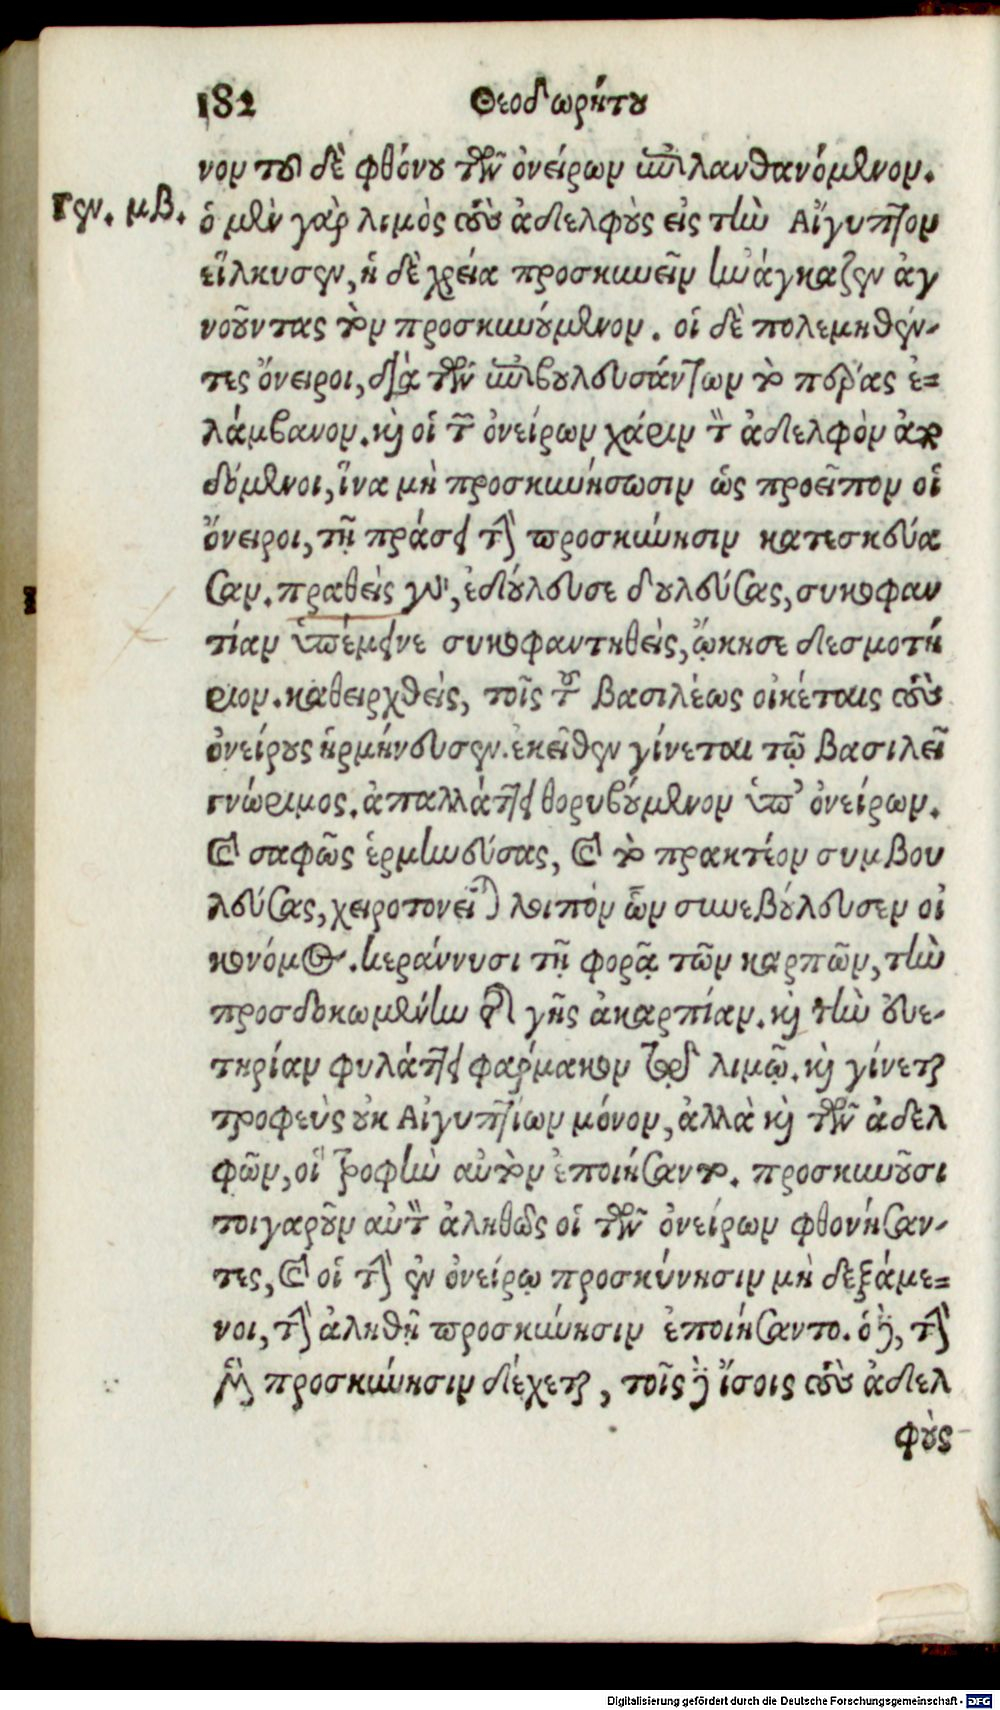 182 Θεοδωρήτου
νον τοῦ δὲ φθόνου τῶν ὀνείρων ἐπιλανθανόμενον.
Γεν. μβ. ὁ μὲν γὰρ λιμὸς τοὺς ἀδελφοὺς εἰς τὴν Αἴγυπτον
εἵλκυσεν, ἡ δὲ χρεία προσκυνεῖν ἠνάγκαζεν ἀγ
νοοῦντας τὸν προσκυνούμενον. οἱ δὲ πολεμηθέν-
τες ὄνειροι, διὰ τῶν ἐπιβουλευσάντων τὸ πέρας ἐ=
λάμβανον. καὶ οἱ τῶν ὀνείρων χάριν τὸν ἀδελφὸν ἀπο
δόμενοι, ἵνα μὴ προσκυνήσωσιν ὡς προεῖπον οἱ
ὄνειροι, τῇ πράσει τὴν προσκύνησιν κατεσκεύα
σαν. πραθεὶς γοῦν, ἐδούλευσε δουλεύσας, συκοφαν
τίαν ὑπέμεινε συκοφαντηθεὶς, ᾤκησε δεσμοτή
ριον. καθειρχθεὶς, τοῖς τοῦ βασιλέως οἰκέταις τοὺς
ὀνείρους ἡρμήνευσεν. ἐκεῖθεν γίνεται τῷ βασιλεῖ
γνώριμος. ἀπαλλάττει θορυβούμενον ὑπ' ὀνείρων.
καὶ σαφῶς ἑρμηνεύσας, καὶ τὸ πρακτέον συμβου
λεύσας, χειροτονεῖται λοιπὸν ὧν συνεβούλευσεν οἰ
κονόμος. κεράννυσι τῇ φορᾷ τῶν καρπῶν, τὴν
προσδοκωμένην τῆς γῆς ἀκαρπίαν. καὶ τὴν εὐε-
τηρίαν φυλάττει φάρμακον τῷ λιμῷ. καὶ γίνεται
τροφεὺς οὐκ Αἰγυπτίων μόνον, ἀλλὰ καὶ τῶν ἀδελ
φῶν, οἳ τροφὴν αὐτὸν ἐποιήσαντο. προσκυνοῦσι
τοιγαροῦν αὐτὸν ἀληθῶς οἱ τῶν ὀνείρων φθονήσαν-
τες, καὶ οἱ τὴν ἐν ὀνείρῳ προσκύνησιν μὴ δεξάμε=
νοι, τὴν ἀληθῆ προσκύνησιν ἐποιήσαντο. ὁ δὲ, τὴν
μὲν προσκύνησιν δέχεται, τοῖς δὲ ἴσοις τοὺς ἀδελ
φοὺς
Digitalisierung gefördert durch die Deutsche Forschungsgemeinschaft - DFG